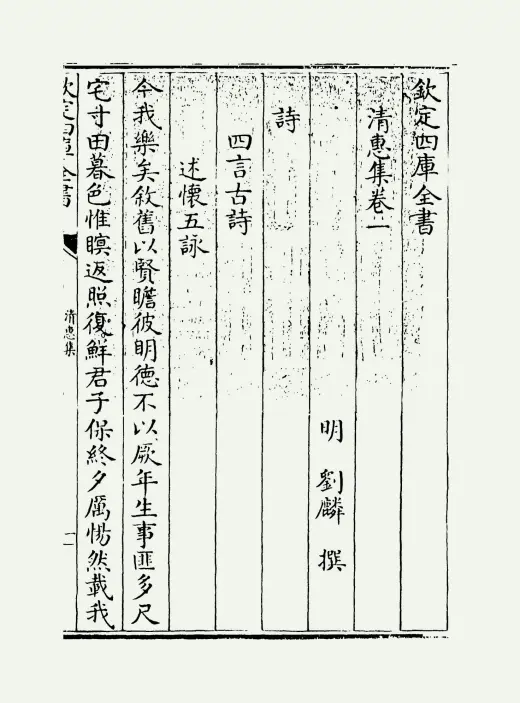 欽定四庫全書
清惠集卷一
明 劉麟 撰
詩
四言古詩
述懷五詠
今我樂矣敘舊以賢瞻彼明德不以厥年生事匪多尺
宅寸田暮色惟瞑返照復鮮君子保終夕厲惕然載我
欽定四庫全書
清惠集
一